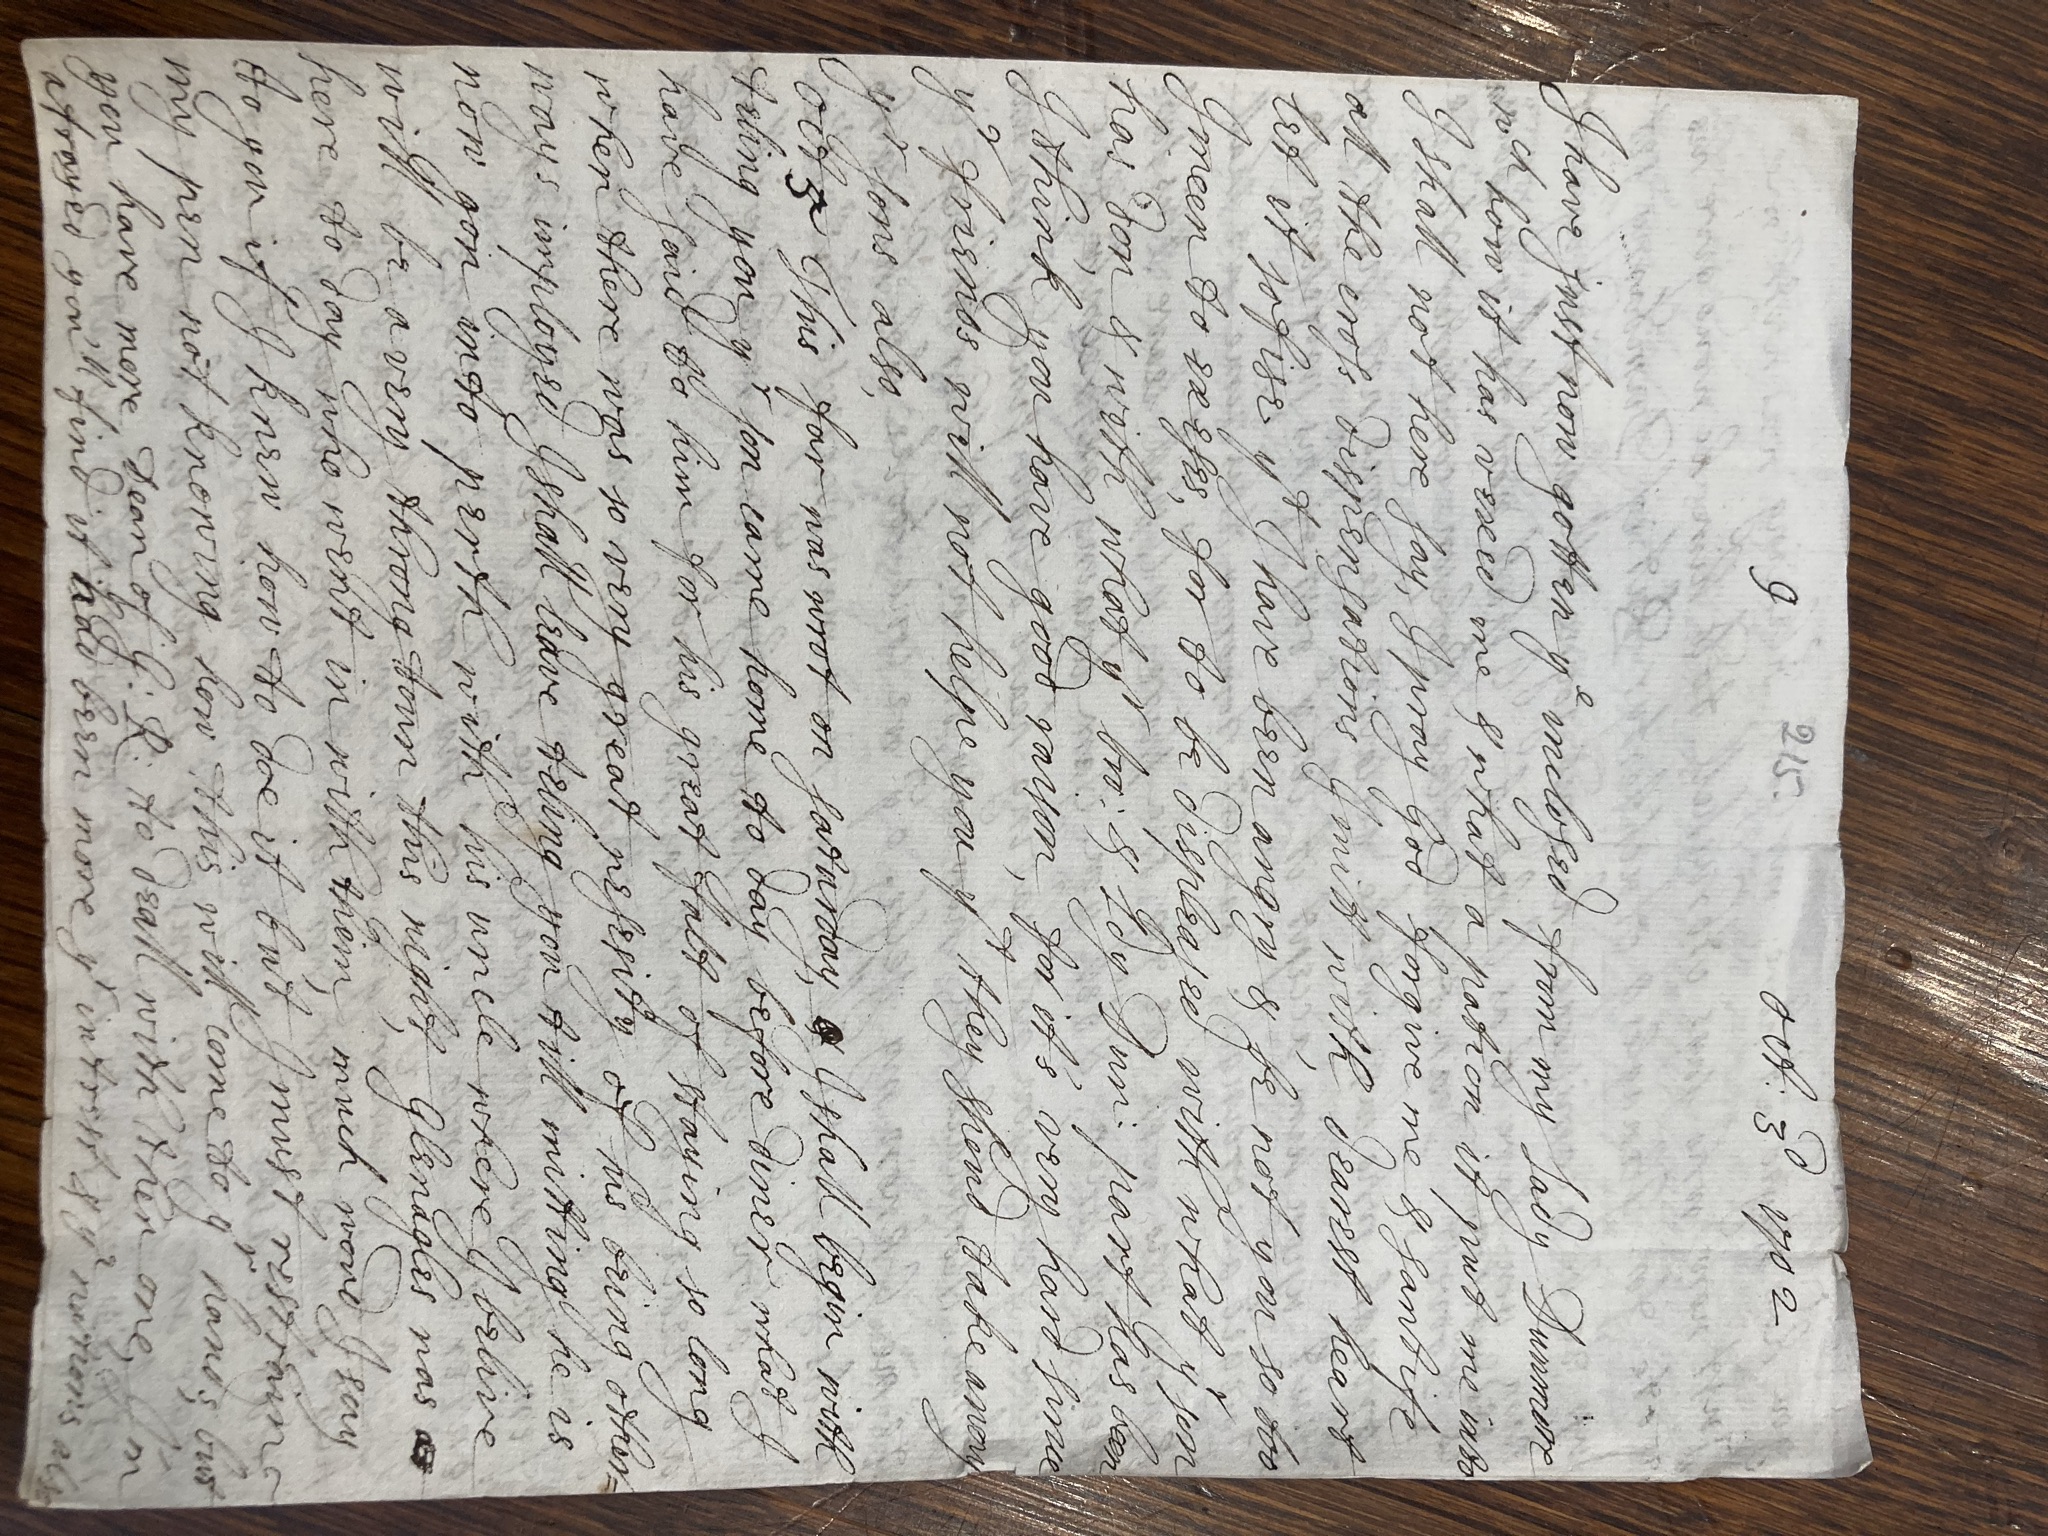 9 215. Oct: 3d 1702
I have just now gotten ye inclosed from my Lady Dunmore
wch how it has vexed me & what a pation it put me into
I shall not here say, I pray God forgive me & santife
all the cross dispensations I mitt with, dearest heart
let it sofise yt I have been angry & be not you so too
I meen to exeses, for to be displeased with what yr son
has don, & with what yr bro: & Ldy Dun: part has been
I think you have good raison, for it's very hard since
yr friends will not helpe you yt they shoud take away
yr sons also,
Oct 5 This far was wrot on saturday, & I shall begin with
teling you yr son came home to day before diner what I
have said to him for his great falt of staying so long
when there was so very great nesesity of his being other=
ways imployed I shall leave teling you till mitting he is
now gon into perth with his uncle where I belive
will be a very throng toun this night, Glenagles was
here to day who went in with them, much woud I say
to you if I knew how to doe it but I must restrain
my pen not knowing how this will come to yr hands, but
you have more Dean of G: R: to deall with then one, I'm
afrayed you'll find it had been more yr intrest & yr nations also